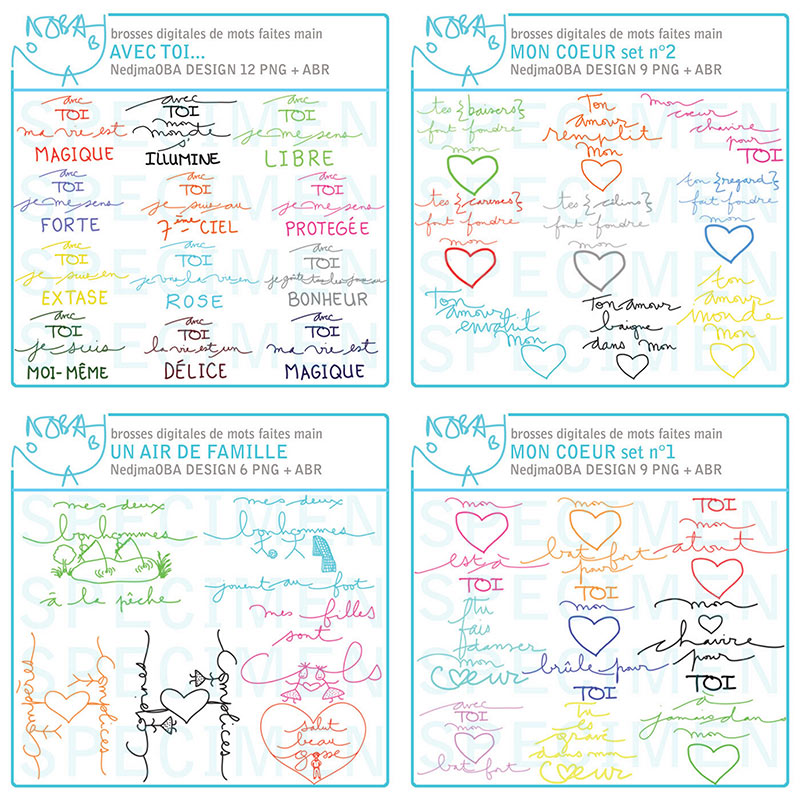 NOBA
brosses digitales de mots faites main
AVEC TOI...
NedjmaOBA DESIGN 12 PNG + ABR
SPECIMEN
avec
TOI
ma vie est
MAGIQUE
avec
TOI
mon
monde
s'
ILLUMINE
avec
TOI
je me sens
LIBRE
avec
TOI
je me sens
FORTE
avec
TOI
je suis au
7ème CIEL
avec
TOI
je me sens
PROTEGÉE
avec
TOI
je suis en
EXTASE
avec
TOI
je vois la vie en
ROSE
avec
TOI
BONHEUR
avec
TOI
je suis
MOI-MÊME
avec
TOI
la vie est un
DÉLICE
avec
TOI
ma vie est
MAGIQUE
NOBA
brosses digitales de mots faites main
MON COEUR set n°2
NedjmaOBA DESIGN 9 PNG + ABR
SPECIMEN
tes {baisers}
font fondre
mon
Ton
amour
remplit
mon
mon
cœur
chavire
pour
TOI
tes {caresses}
font fondre
mon
tes {câlins}
font fondre
mon
ton {regard}
fait fondre
mon
Ton amour
envahit
mon
Ton amour
baigne
dans mon
ton
amour
inonde
mon
NOBA
brosses digitales de mots faites main
UN AIR DE FAMILLE
NedjmaOBA DESIGN 6 PNG + ABR
SPECIMEN
mes deux
bonhommes
à la pêche
mes deux
bonhommes
jouent au foot
mes filles
sont
Complices
Complices
salut
beau
gosse
NOBA
brosses digitales de mots faites main
MON COEUR set n°1
NedjmaOBA DESIGN 9 PNG + ABR
SPECIMEN
mon
est à
TOI
mon
bat fort
pour
TOI
TOI
mon
atout
tu
fais
danser
mon
Cœur
mon
brûle pour
TOI
mon
chavire
pour
TOI
avec
TOI
mon
bat fort
Tu
es
gravé
dans mon
Cœur
à
jamais dans
mon